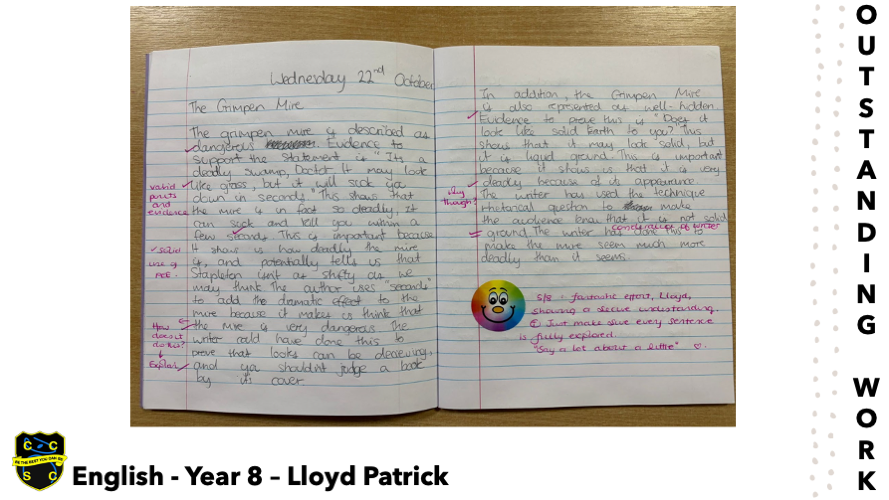 Wednesday 22nd October
The Grimpen Mire
The grimpen mire is described as
dangerous Evidence to
support the statement is "Its a
deadly swamp, Doctor It may look
like grass, but it will suck ya
down in seconds" This shows that
the mire is in fact so deadly, it
can suck and kill you within a
few seconds. This is important because
It show is how deadly the mire
is, and potentially tells us that
Stapleton isnt as shifty as we
may think The author uses "seconds"
to add the dramatic effect to the
mire because it makes is think that
the mire is very dangerous The
writer could have done this to
prove that looks can be deceiving,
and ya shouldnt judge a book
by its cover
valid
points
and
evidence
✓ solid
use of
PEE.
How
doesit
do this?
↓
Explain
In addition, the Grimpen Mire
is also represented as well-hidden
Evidence to prove this is "Does it
look like solid earth to you? This
shows that it may look solid, but
it is liquid ground This is important
because it shows us that it is very
deadly because of its appearance
The writer has used the technique
rhetorical question to make
the audience know that it is not solid
ground The writer has done this to
make the mire seem much more
deadly than it seems.
Why
though?
consideration of writer
S/8 - fantastic effort, Lloyd,
showing a secure understanding.
Just make sure every sentence
is fully explored.
"Say a lot about a little" ♡.
C C
BE THE BEST YOU CAN BE
S C
English - Year 8 – Lloyd Patrick
OUTSTANDING WORK